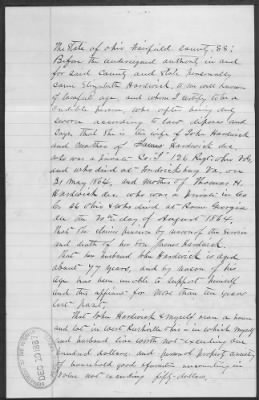 The State of Ohio Fairfield County, SS:
Before the undersigned authority in and
for said County and State personally
came Elizabeth Hardwick, to me well known
of lawful age, and whom I certify to be a
credible person, who after being duly
sworn according to law deposes and
says that she is the wife of John Hardwick
and mother of James Hardwick dec
who was a private Co. 126 Regt. Ohio Vols
and who died at Fredricksburg Va. on
21 May 1864, and mother of Thomas H.
Hardwick dec who was a private in Co
Ohio & who died at Rome Georgia
on the 20th day of August 1864.
That she claims pension by reason of the service
and death of her son James Hardwick.
That her husband John Hardwick is aged
about 77 years, and by reason of his
age has been unable to support himself
and this affiant for more than ten years
last past,
That John Hardwick & myself own a house
and lot in West Rushville Ohio in which myself
and husband live worth not exceeding one
hundred dollars and personal property
of household goods amounting in
value not exceeding fifty dollars,